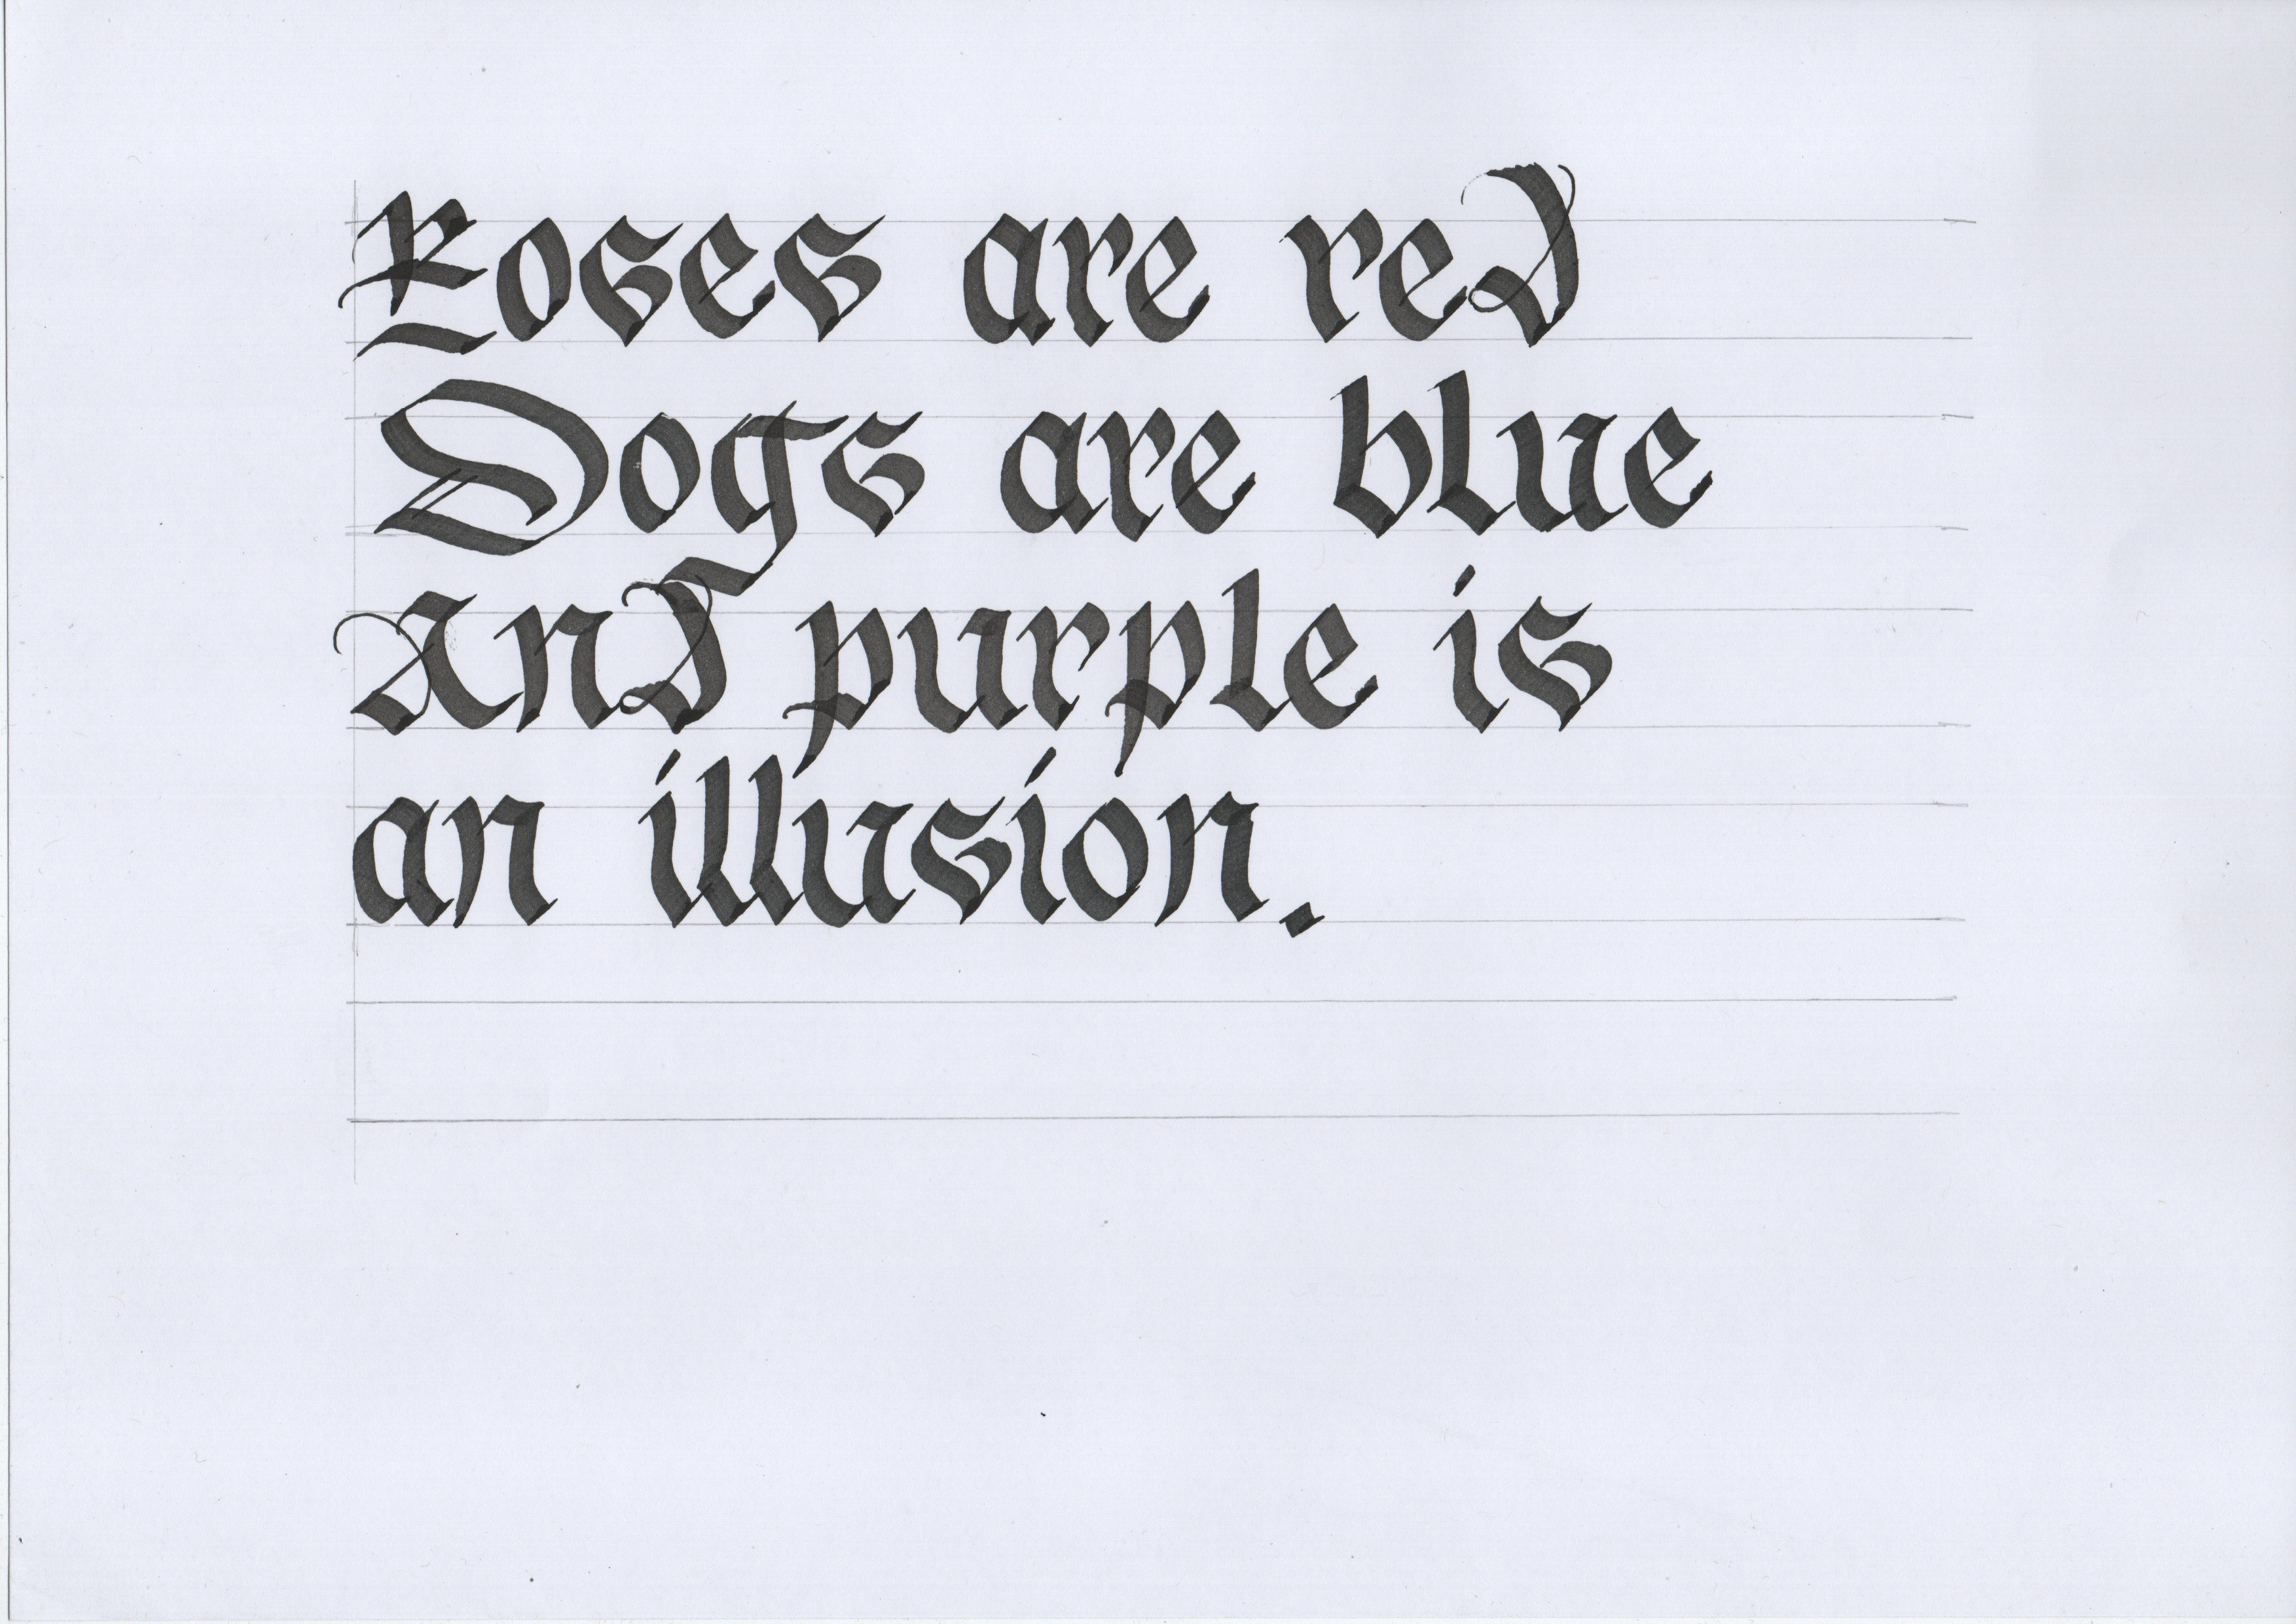 Roses are red
Dogs are blue
And purple is
an illusion.